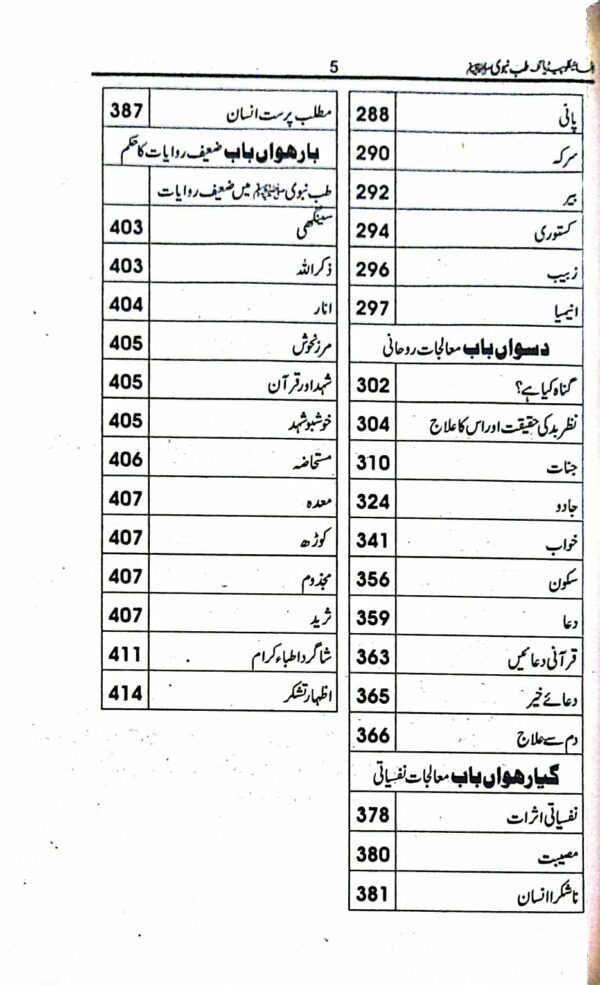 انسائیکلوپیڈیا آف طب نبوی ﷺ 5
پانی 288
سرکہ 290
بیر 292
کستوری 294
زبیب 296
انیمیا 297
دسواں باب معالجات روحانی
گناہ کیا ہے؟ 302
نظر بد کی حقیقت اور اس کا علاج 304
جنات 310
جادو 324
خواب 341
سکون 356
دعا 359
قرآنی دعائیں 363
دعائے خیر 365
دم سے علاج 366
گیارھواں باب معالجات نفسیاتی
نفسیاتی اثرات 378
مصیبت 380
ناشکرا انسان 381
مطلب پرست انسان 387
بارھواں باب ضعیف روایات کا حکم
طب نبوی ﷺ میں ضعیف روایات
سینگھی 403
ذکر اللہ 403
انار 404
مرزنخوش 405
شہد اور قرآن 405
خوشبو شہد 405
مستحاضہ 406
معدہ 407
کوڑھ 407
مجذوم 407
ثرید 407
شاگرد اطباء کرام 411
اظہار تشکر 414